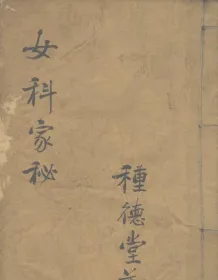 女科家秘
種德堂